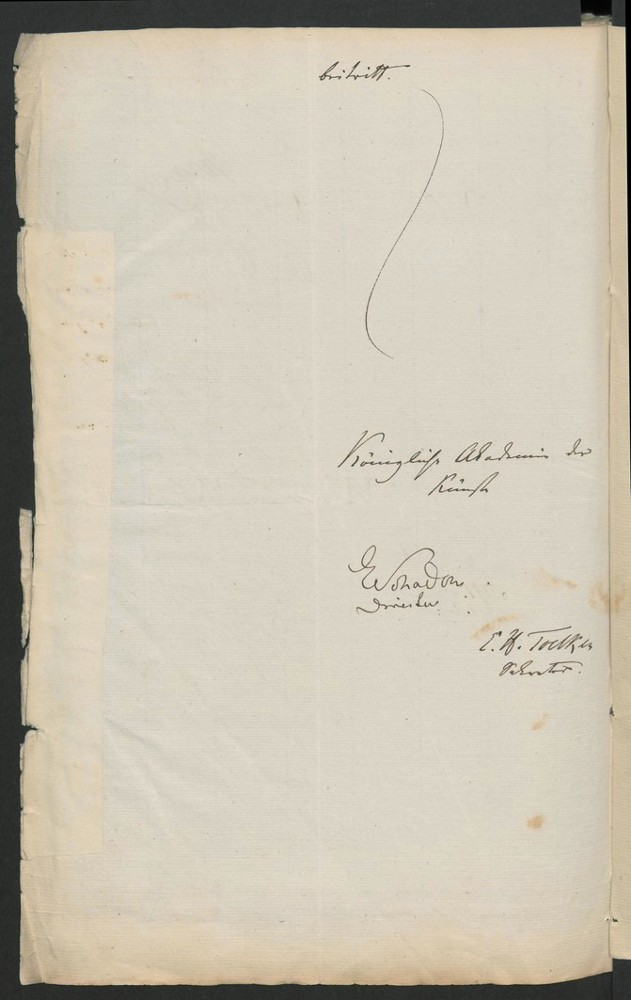 beitritt.
Königliche Akademie der
Künste
Schadow
Director
E. H. Toelken
Sekretär.